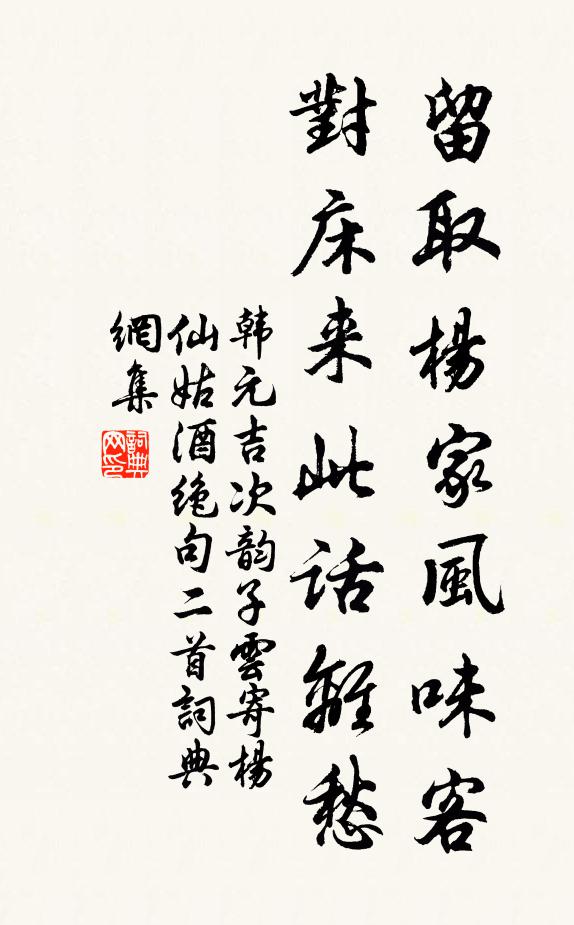 留取楊家風味客
對床来此話離愁
韩元吉次韵子雲寄楊
仙姑酒绝句二首詞典
網集
詞典
网印